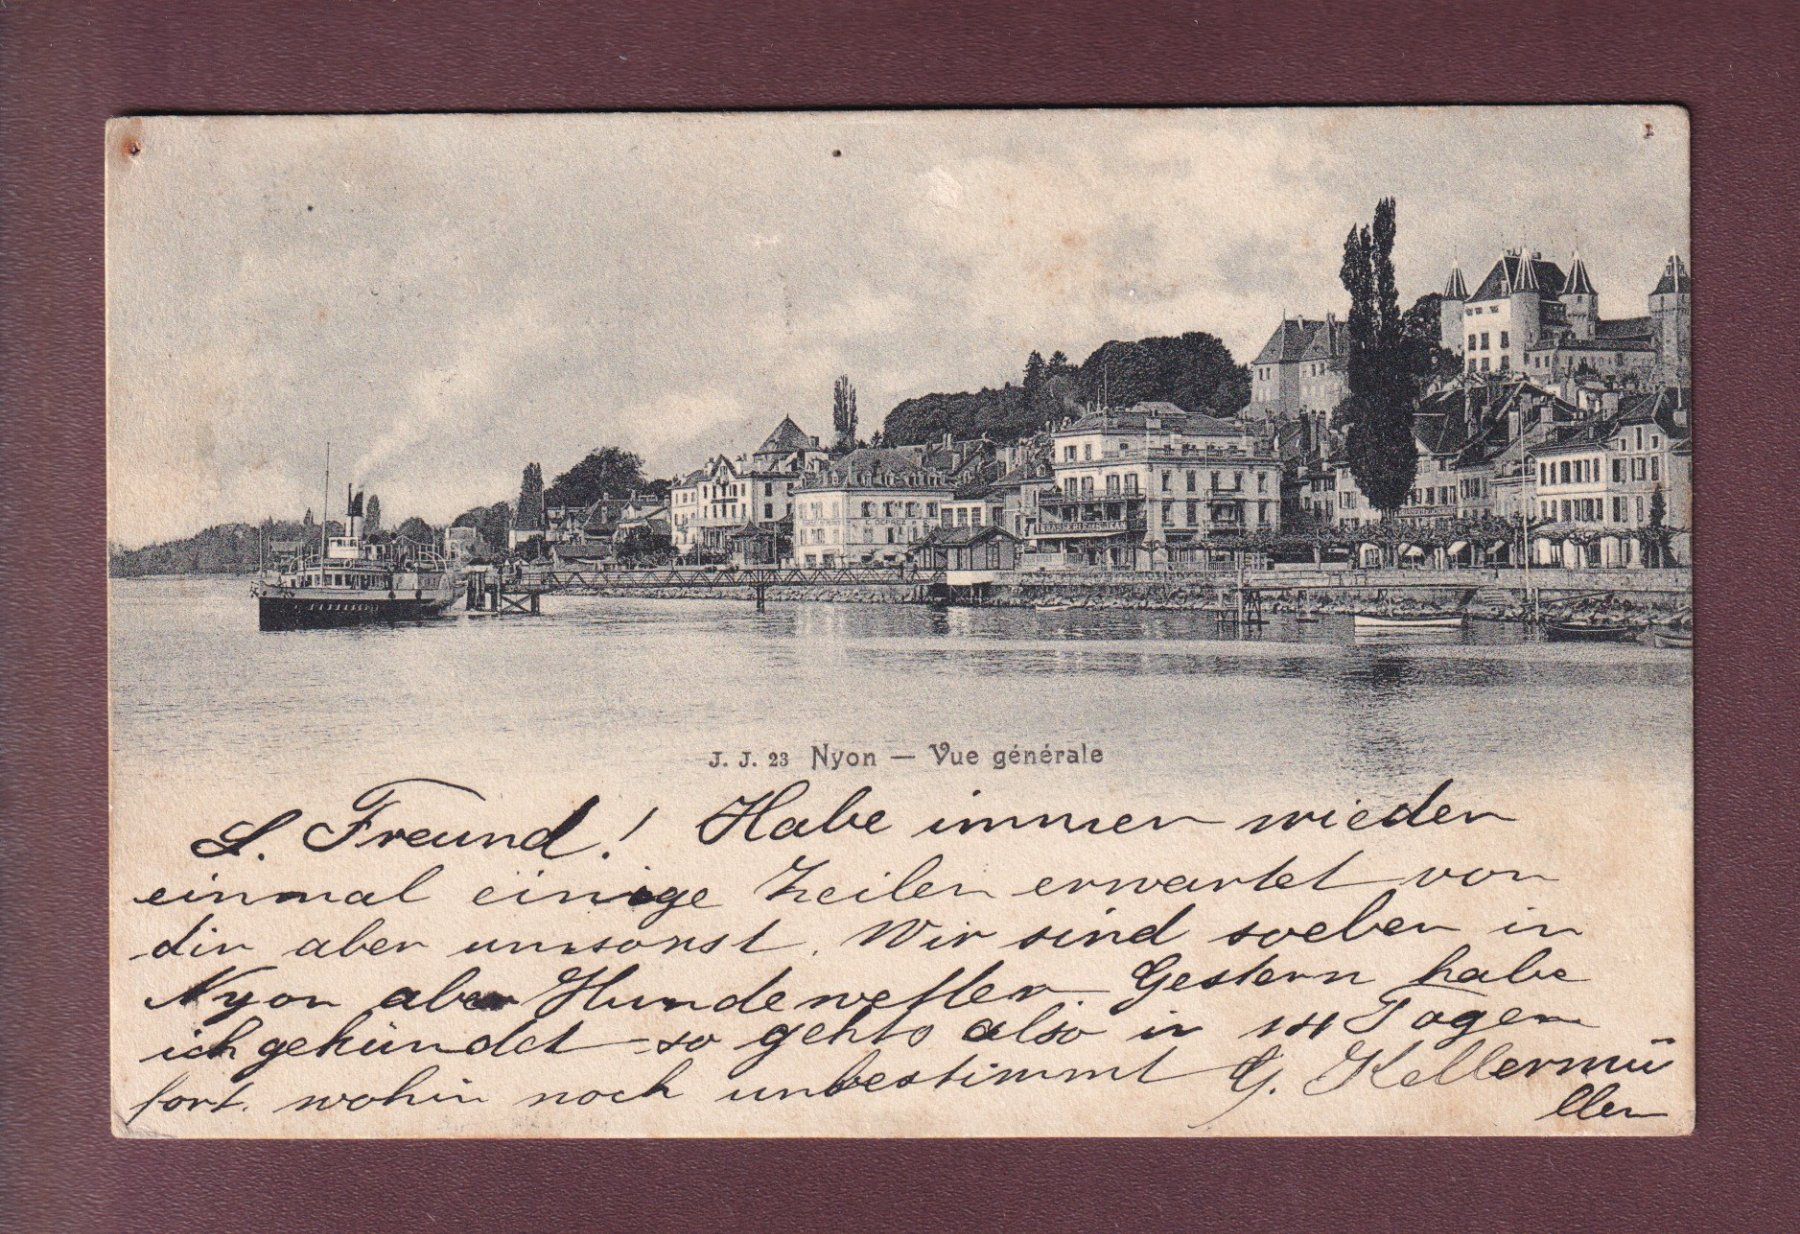 J. J. 23 Nyon — Vue générale
L. Freund! Habe immer wieder
einmal einige Zeilen erwartet von
dir aber umsonst. Wir sind soeben in
Nyon aber Hundewetter. Gestern habe
ich gekündet so gehts also in 14 Tagen
fort. wohin noch unbestimmt G. Kellermü
ller